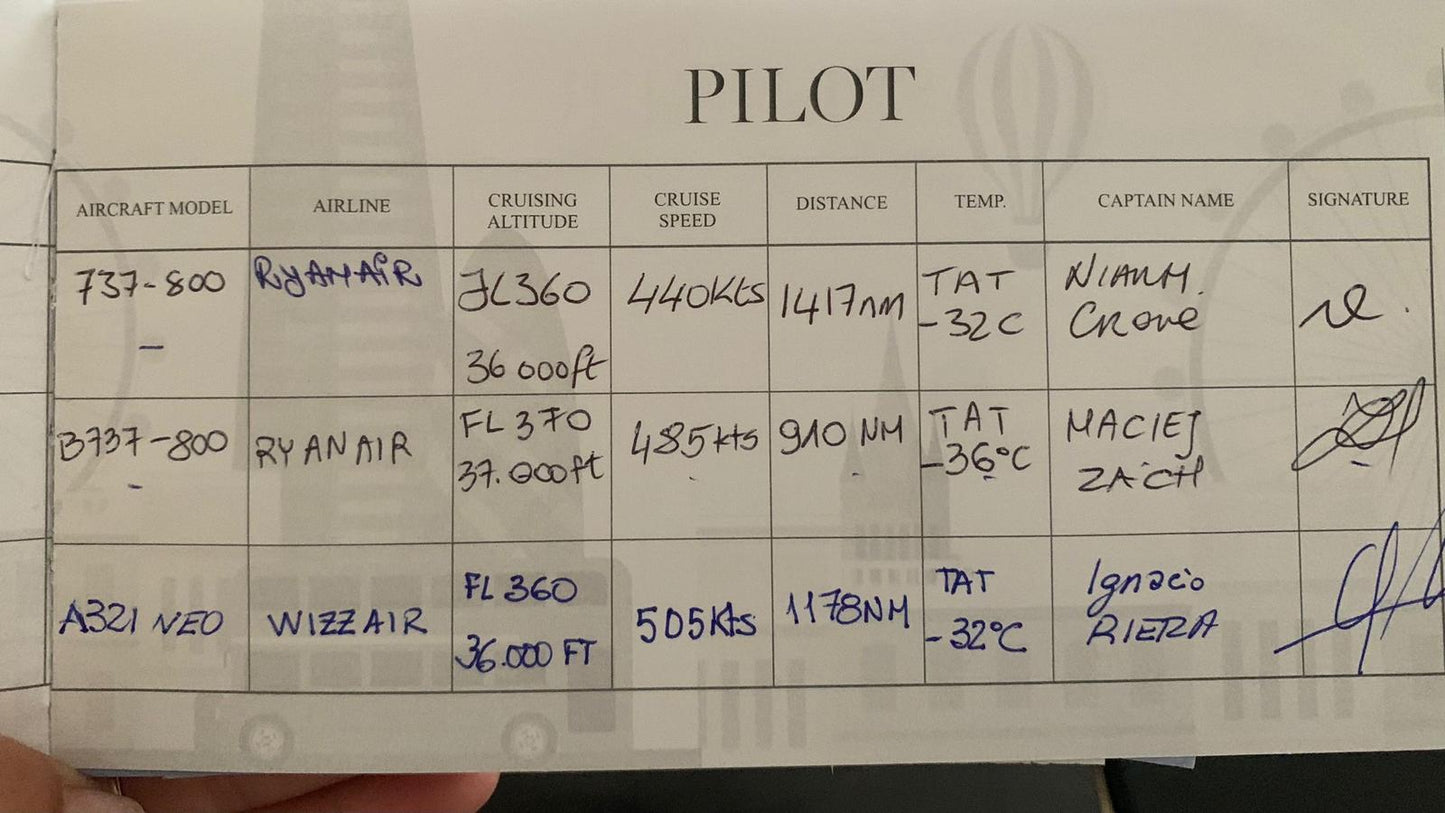 PILOT
AIRCRAFT MODEL AIRLINE CRUISING ALTITUDE CRUISE SPEED DISTANCE TEMP. CAPTAIN NAME SIGNATURE
737-800 RYANAiR FL360 440Kts 1417nm TAT NIAMH
36 000ft -32C CRowe
B737-800 RYANAIR FL 370 485kts 910 NM TAT MACIEJ
37.000ft -36°C ZACH
A321 NEO WIZZAIR FL 360 505Kts 1178NM TAT Ignacio
36.000 FT -32°C RIERA